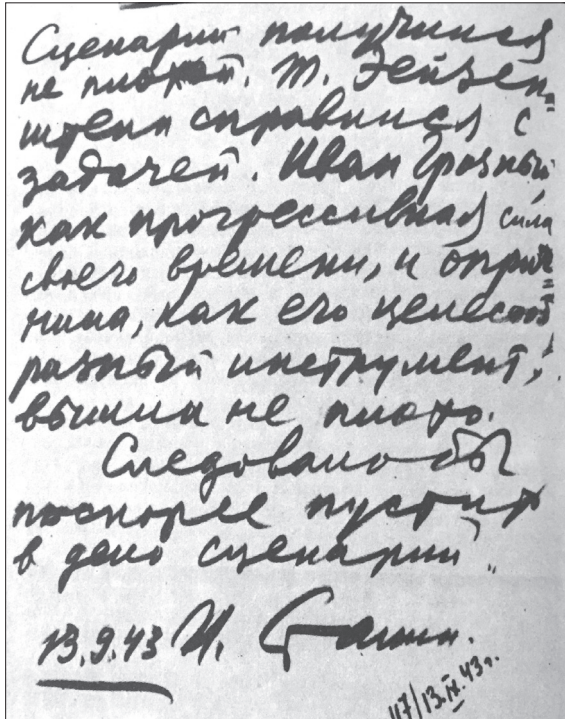 Сценарий получился
не плохой. Т. Эйзен=
штейн справился с
задачей. Иван Грозный,
как прогрессивная сила
своего времени, и оприч=
нина, как его целесооб=
разный инструмент,
вышли не плохо.
Следовало бы
поскорее пустить
в дело сценарий.
13.9.43 И. Сталин.
117/13.IX.43г.